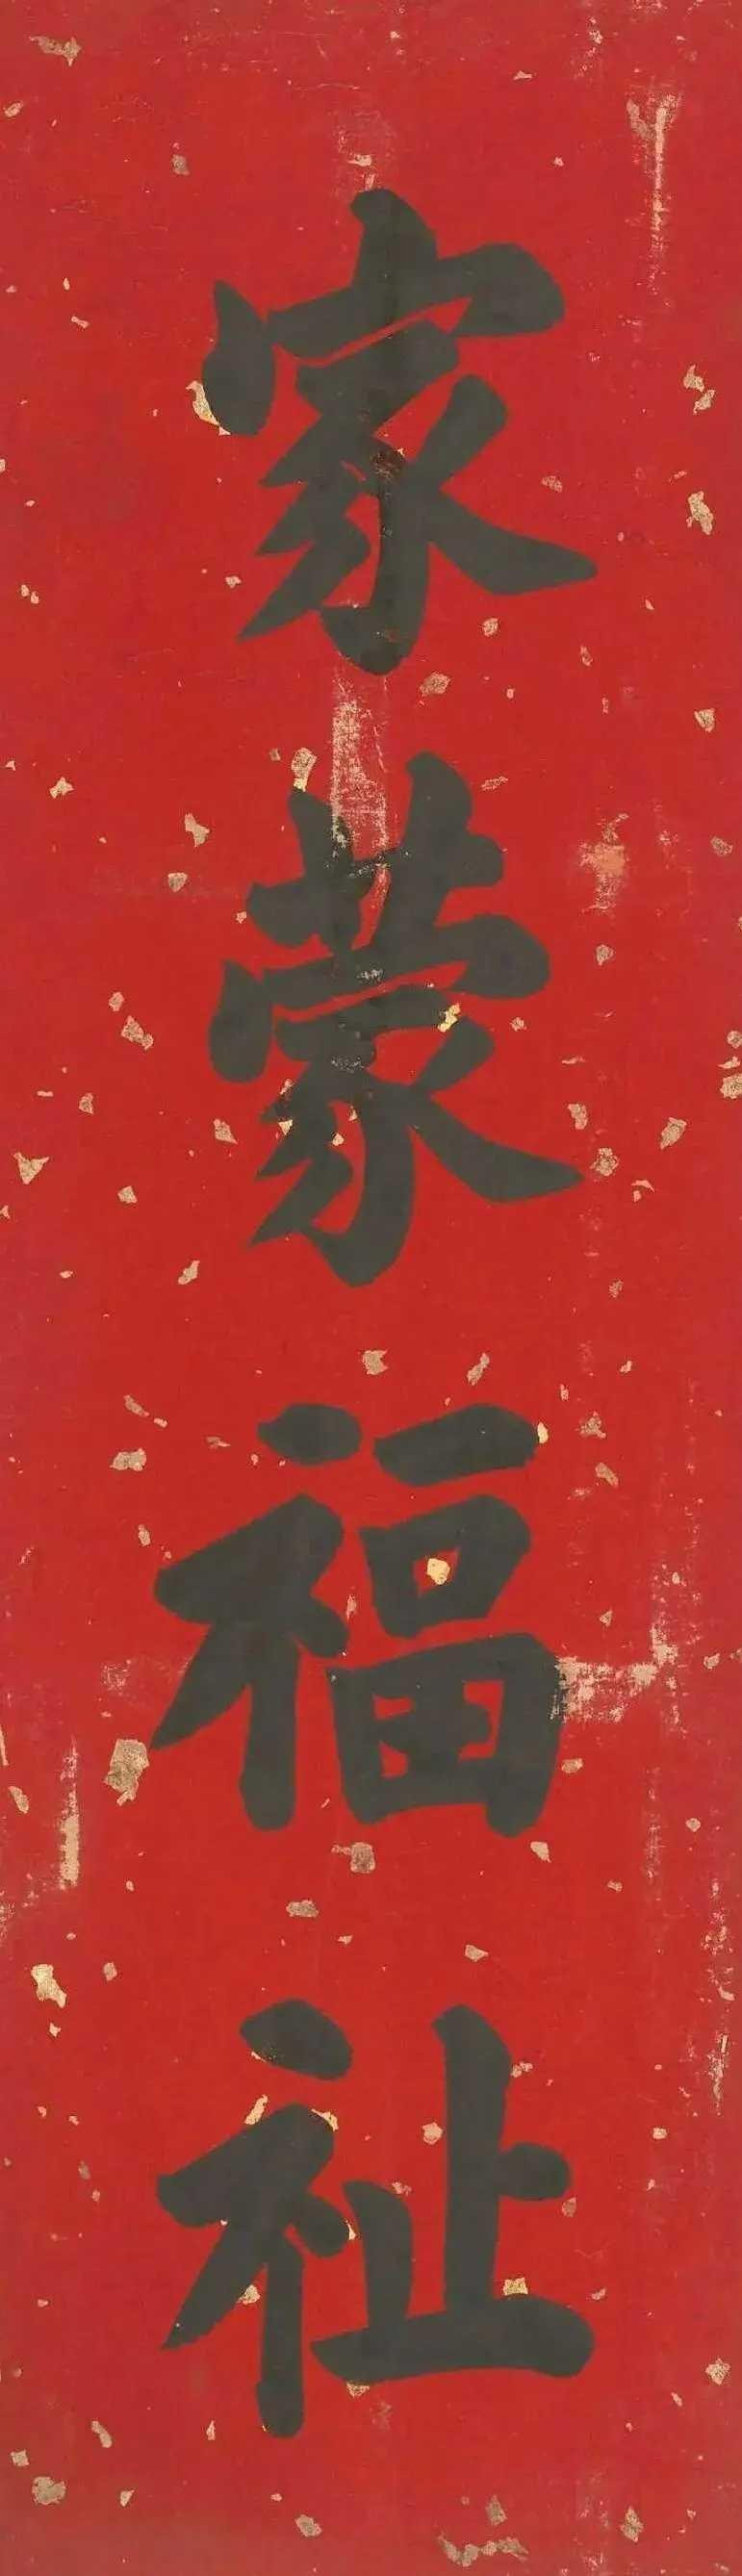 家蒙福祉